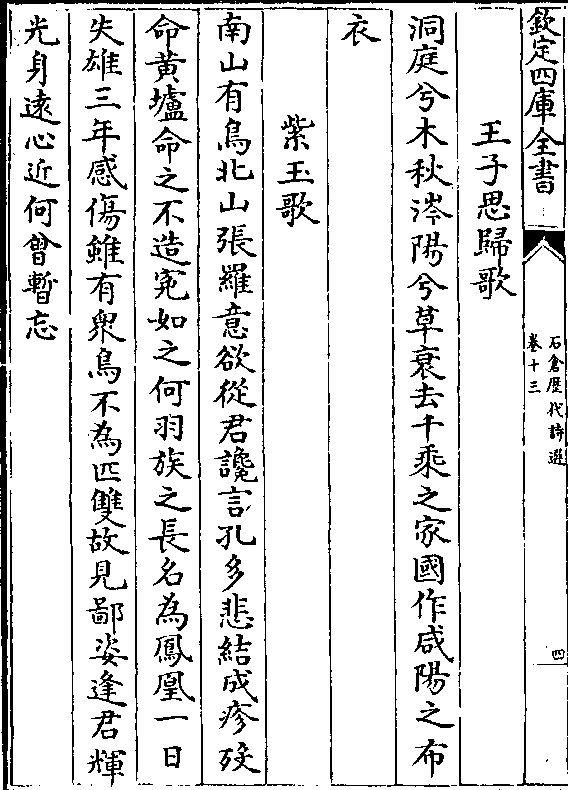 欽定四庫全書
石倉歷代詩選
卷十三
四
王子思歸歌
洞庭兮木秋涔陽兮草衰去千乘之家國作咸陽之布
衣
紫玉歌
南山有鳥北山張羅意欲從君讒言孔多悲結成疹歿
命黄壚命之不造寃如之何羽族之長名為鳳凰一日
失雄三年感傷雖有衆鳥不為匹雙故見鄙姿逢君輝
光身遠心近何曾暫忘